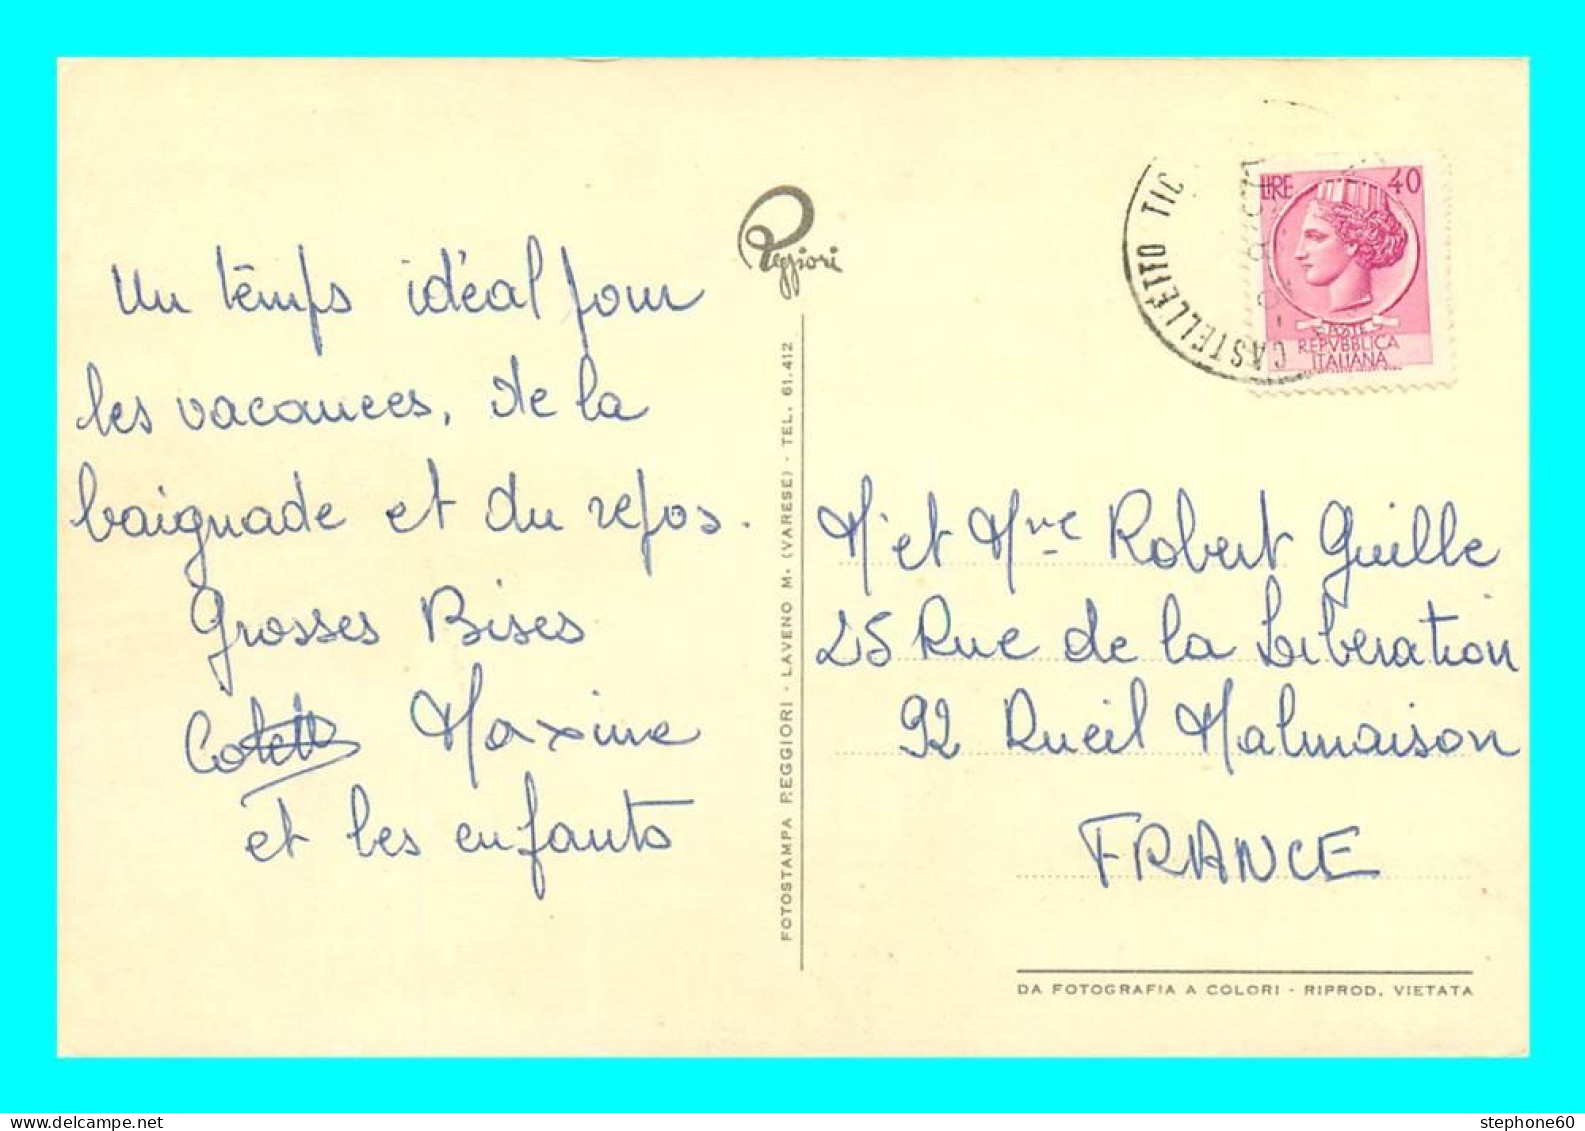 Un temps idéal pour
les vacances, de la
baignade et du repos.
Grosses Bises
Colette Maxime
et les enfants
Peggiori
FOTOSTAMPA PEGGIORI - LAVENO M. (VARESE) - TEL. 61.412
CASTELLETTO TIC
LIRE 40
POSTE
REPVBBLICA
ITALIANA
M. et Mme Robert Guille
25 Rue de la Libération
92 Rueil Malmaison
FRANCE
DA FOTOGRAFIA A COLORI - RIPROD. VIETATA
stephone60